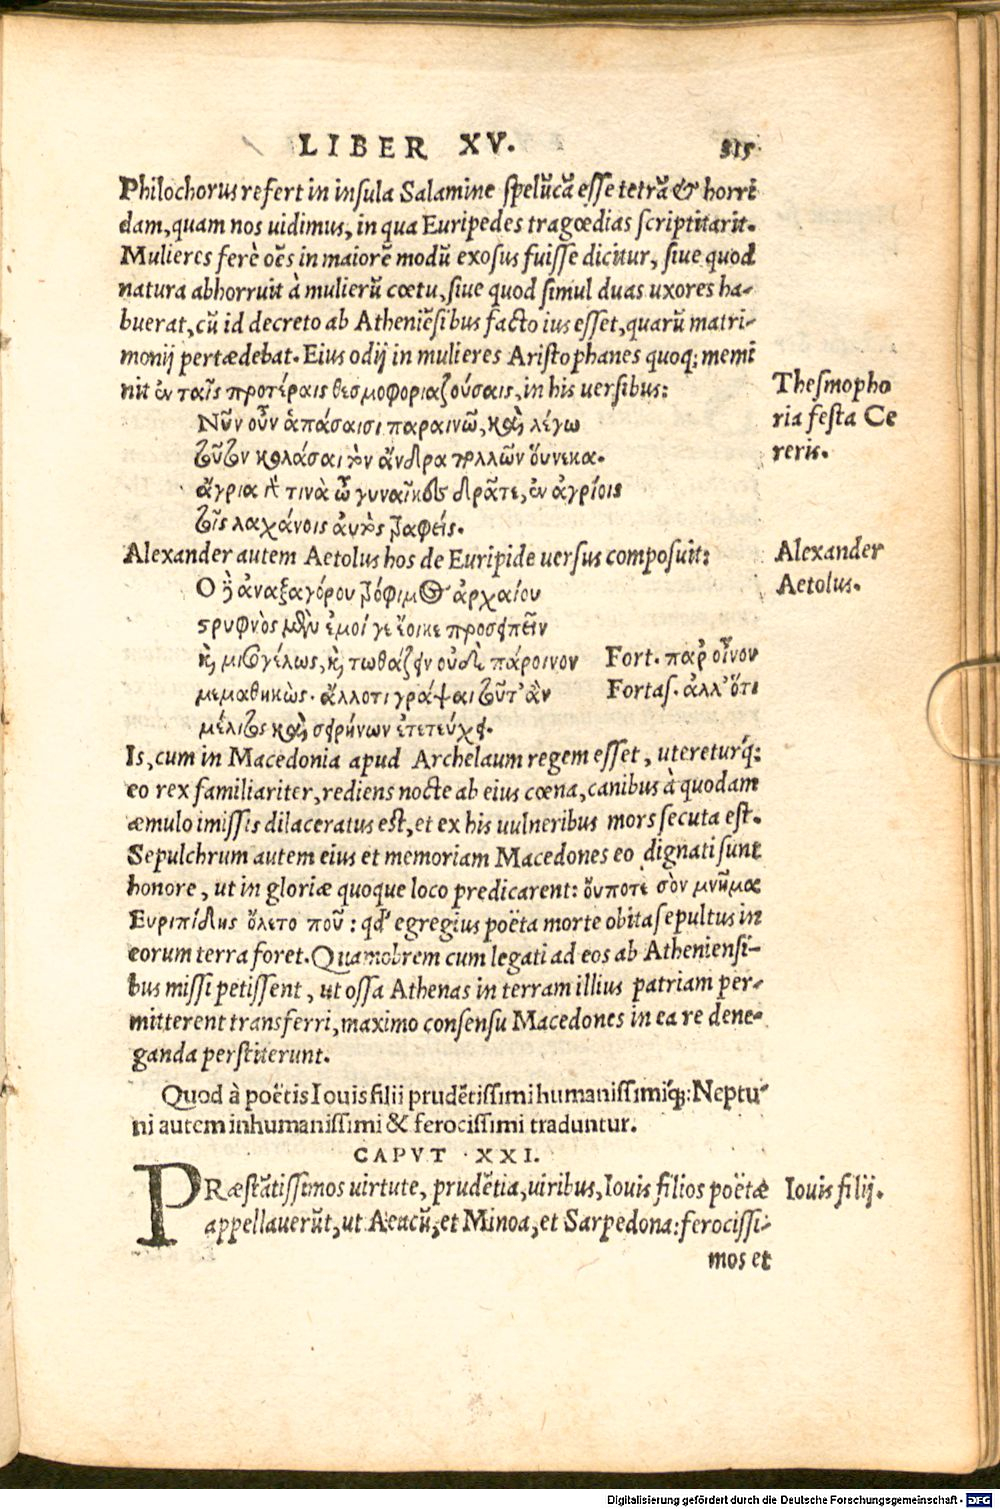 LIBER XV. 315
Philochorus refert in insula Salamine spelũcã esse tetrã & horri
dam, quam nos uidimus, in qua Euripedes tragœdias scriptitarit.
Mulieres ferè oẽs in maiorẽ modũ exosus fuisse dicitur, siue quod
natura abhorruit à mulierũ cœtu, siue quod simul duas uxores ha-
buerat, cũ id decreto ab Atheniẽsibus facto ius esset, quarũ matri-
monij pertædebat. Eius odij in mulieres Aristophanes quoq; memi
nit ἐν ταῖς προτέραις θεσμοφοριαζούσαις, in his uersibus:
Thesmopho
ria festa Ce
reris.
Νῦν οὖν ἁπάσαισι παραινῶ, καὶ λέγω
τοῦτον κολάσαι τὸν ἄνδρα πολλῶν οὕνεκα.
ἄγρια γάρ τινὰ ὦ γυναῖκες δρᾶτε, ἐν ἀγρίοις
τοῖς λαχάνοις ἀυτὸς τραφείς.
Alexander autem Aetolus hos de Euripide uersus composuit:
Alexander
Aetolus.
Ο δ' ἀναξαγόρου τρόφιμος ἀρχαίου
στρυφνὸς μὲν ἐμοί γε ἔοικε προσειπεῖν
καὶ μισογέλως, καὶ τωθάζειν οὐδὲ πάροινον Fort. παρ' οἶνον
μεμαθηκὼς. ἄλλοτι γράψαι τοῦτ' ἂν Fortas. ἀλλ' ὅτι
μέλιτος καὶ σειρήνων ἐτετεύχει.
Is, cum in Macedonia apud Archelaum regem esset, utereturq́;
eo rex familiariter, rediens nocte ab eius cœna, canibus à quodam
æmulo imissis dilaceratus est, et ex his uulneribus mors secuta est.
Sepulchrum autem eius et memoriam Macedones eo dignati sunt
honore, ut in gloriæ quoque loco predicarent: ὄυποτε σὸν μνῆμα
Ευριπίδης ὄλετο ποῦ: qd' egregius poëta morte obita sepultus in
eorum terra foret. Quamobrem cum legati ad eos ab Atheniensi-
bus missi petissent, ut ossa Athenas in terram illius patriam per-
mitterent transferri, maximo consensu Macedones in ea re dene-
ganda perstiterunt.
Quod à poëtis Iouis filii prudẽtissimi humanissimiq́;: Neptu-
ni autem inhumanissimi & ferocissimi traduntur.
CAPVT XXI.
PRæstãtissimos uirtute, prudẽtia, uiribus, Iouis filios poëtæ
Iouis filij.
appellauerũt, ut Aeacũ, et Minoa, et Sarpedona: ferocissi-
mos et
Digitalisierung gefördert durch die Deutsche Forschungsgemeinschaft - DFG